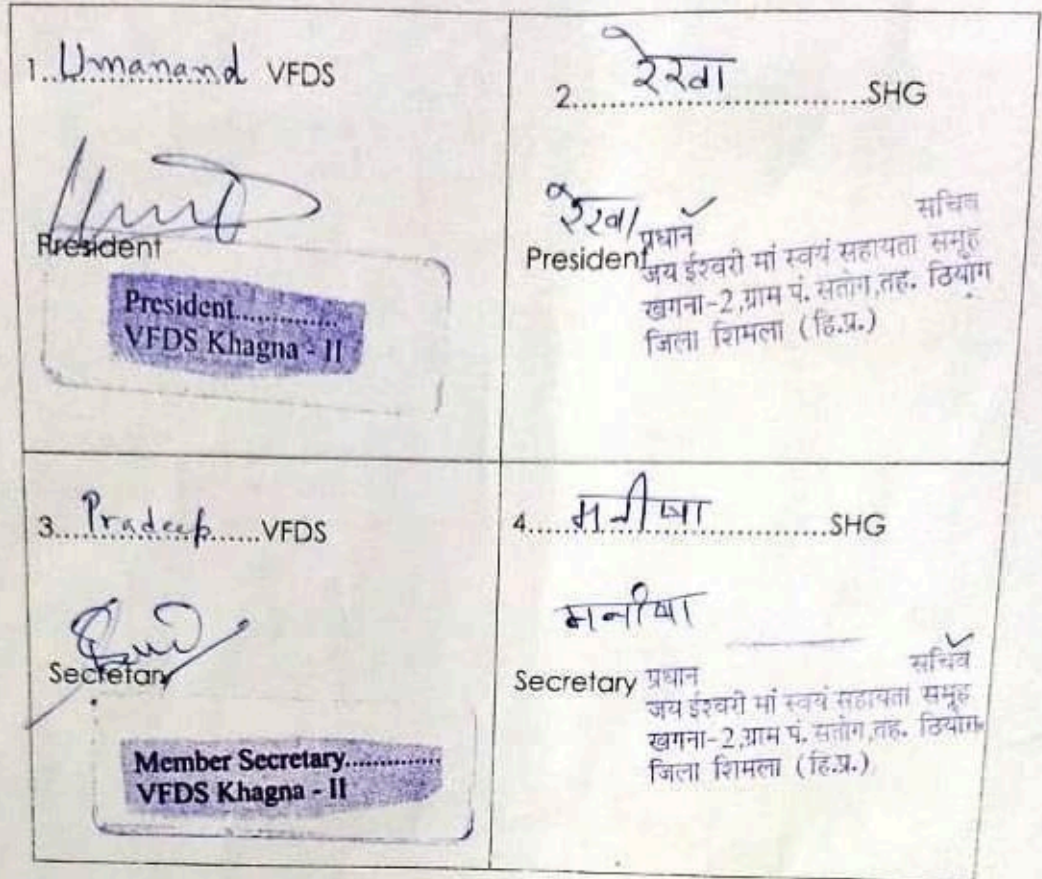 1..Umanand VFDS
President
President.............
VFDS Khagna - II
2.....रेखा.....................SHG
रेखा
President
प्रधान सचिव
जय ईश्वरी मां स्वयं सहायता समूह
खगना-2,ग्राम पं. सतोग,तह. ठियोग
जिला शिमला (हि.प्र.)
3....Pradeep......VFDS
Secretary
Member Secretary..............
VFDS Khagna - II
4.....मनीषा.............SHG
मनीषा
Secretary
प्रधान सचिव
जय ईश्वरी मां स्वयं सहायता समूह
खगना-2,ग्राम पं. सतोग,तह. ठियोग
जिला शिमला (हि.प्र.)